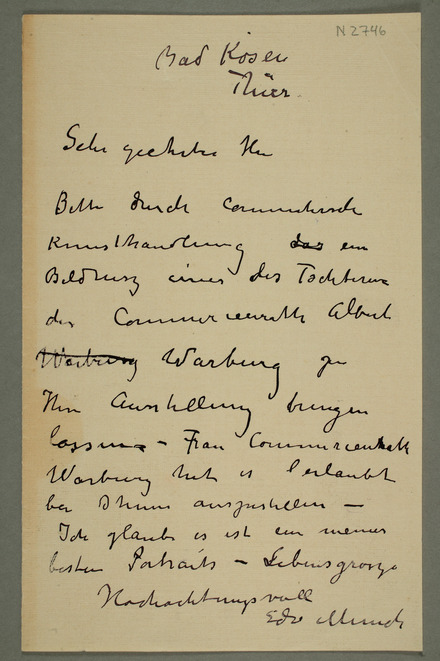 N 2746
Bad Kösen
Thür.
Sehr geehrter Herr
Bitte durch Commetersche
Kunsthandlung das ein
Bildniss eines der Töchteren
des Commercienraths Albert
Warburg Warburg zu
Ihre Ausstellung bringen
lassen – Frau Commercienrath
Warburg hat es erlaubt
bei Ihnen auszustellen –
Ich glaube es ist ein meiner
besten Portraits – Lebensgrosze
Hochachtungsvoll
Edv Munch